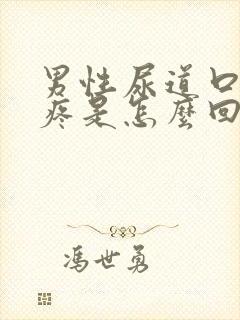 男性尿道口
疼是怎麼回
馮世勇